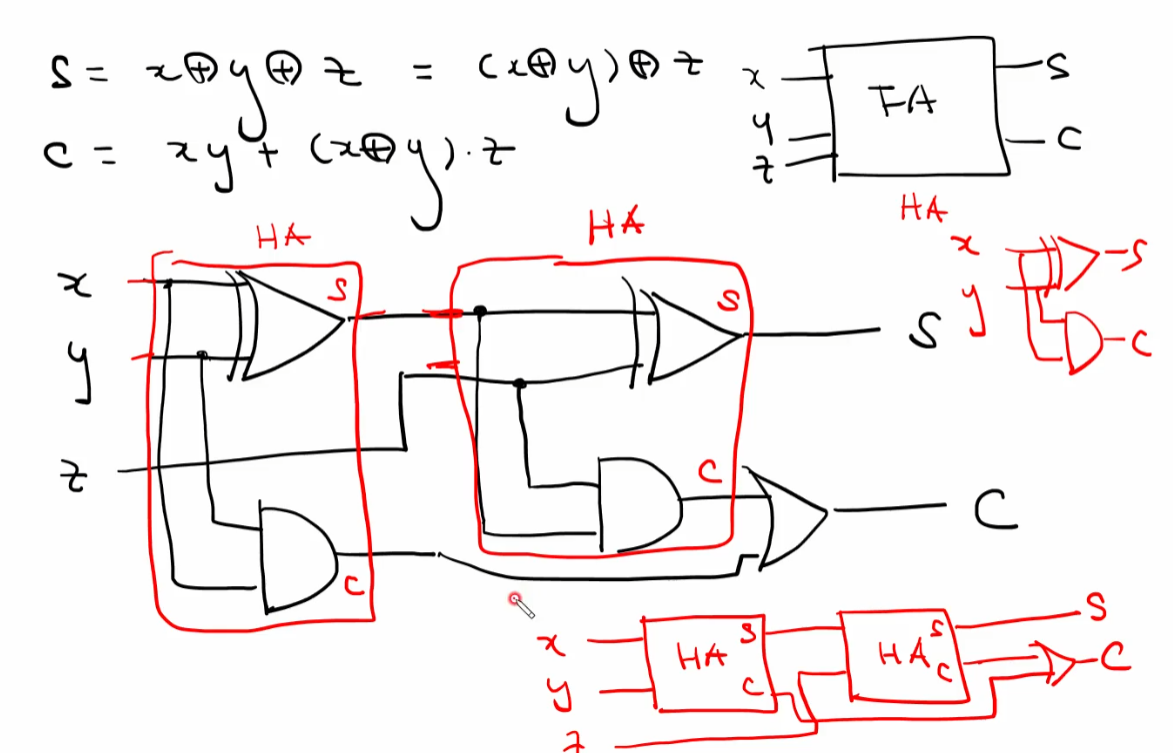 S = x⊕y⊕z = (x⊕y)⊕z
C = xy + (x⊕y)·z
x
y
z
FA
S
C
HA
x
y
S
C
HA
HA
x
y
z
S
C
S
C
S
C
x
y
z
HA
S
C
HA
S
C
S
C